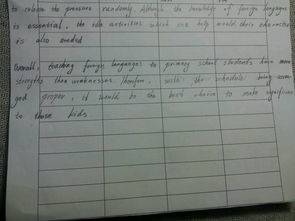 to release the pressure randomly. Although the knowledge of foreign languages
is essential, the idea activities which can help mould their characters
is also needed
Overall, teaching foreign languages to primary school students have more
strengths than weaknesses. Therefore, with the schedule being even
god proper, it would be the best choice to make significance
to those kids